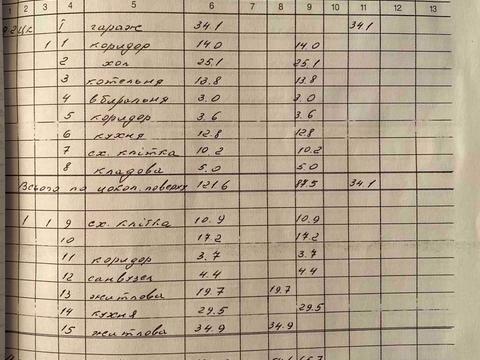 1 2 3 4 5 6 7 8 9 10 11 12 13
цк I гараж 34.1 34.1
1 1 коридор 14.0 14.0
2 хол 25.1 25.1
3 котельня 13.8 13.8
4 вбиральня 3.0 3.0
5 коридор 3.6 3.6
6 кухня 12.8 12.8
7 сх. клітка 10.2 10.2
8 кладова 5.0 5.0
Всього по цокол. поверху 121.6 87.5 34.1
1 1 9 сх. клітка 10.9 10.9
10 17.2 17.2
11 коридор 3.7 3.7
12 санвузел 4.4 4.4
13 житлова 19.7 19.7
14 кухня 29.5 29.5
15 житлова 34.9 34.9